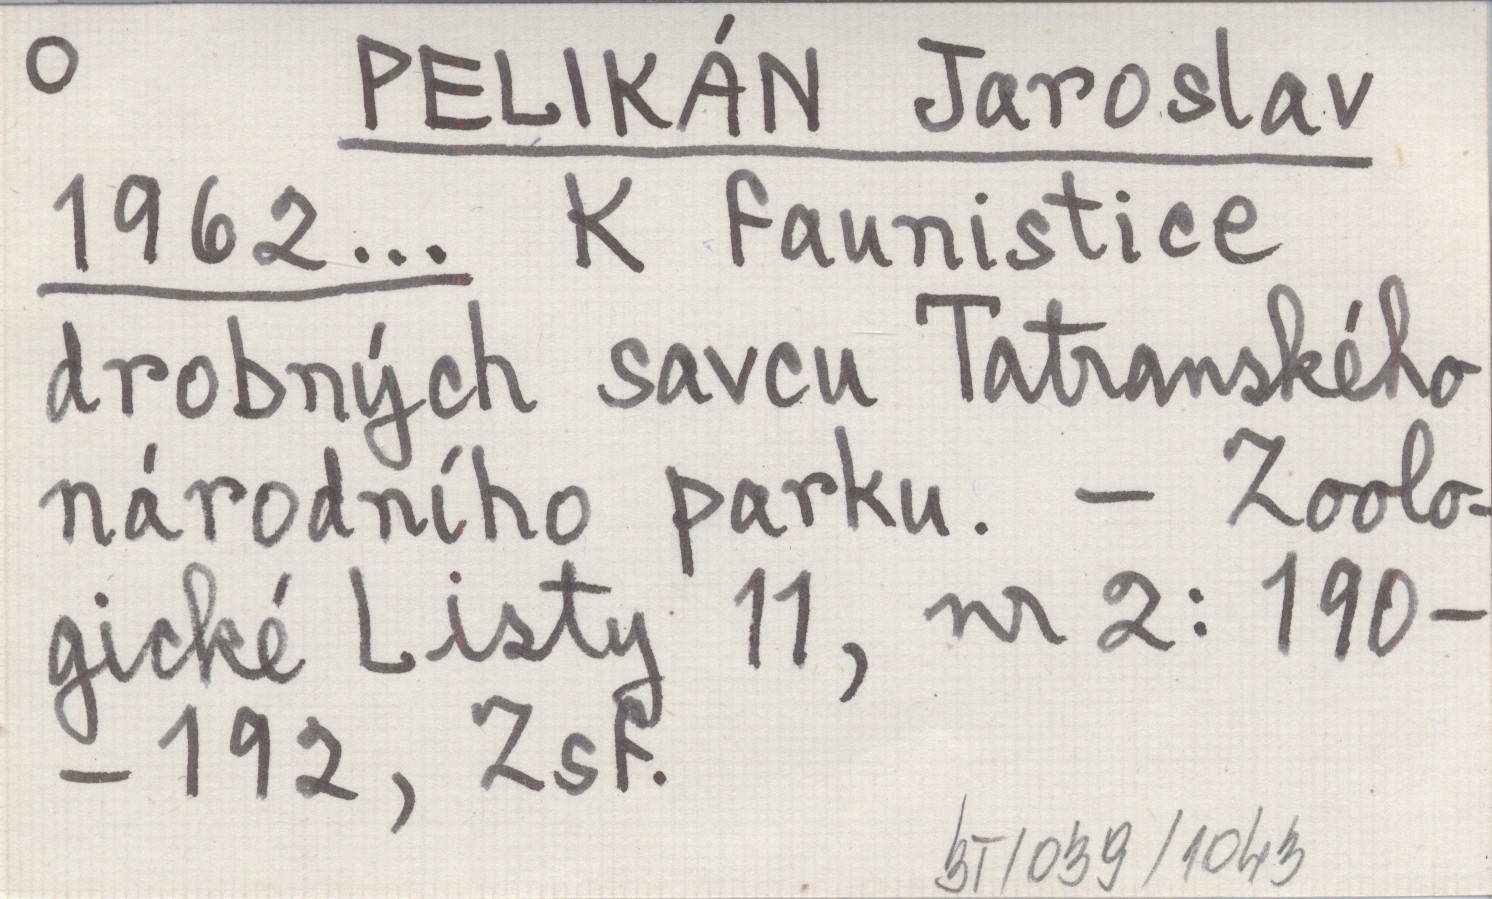 O PELIKÁN Jaroslav
1962... K faunistice
drobných savcu Tatranského
národního parku. – Zoolo-
gické Listy 11, nr 2: 190–
– 192, Zsf.
3T/039/1043